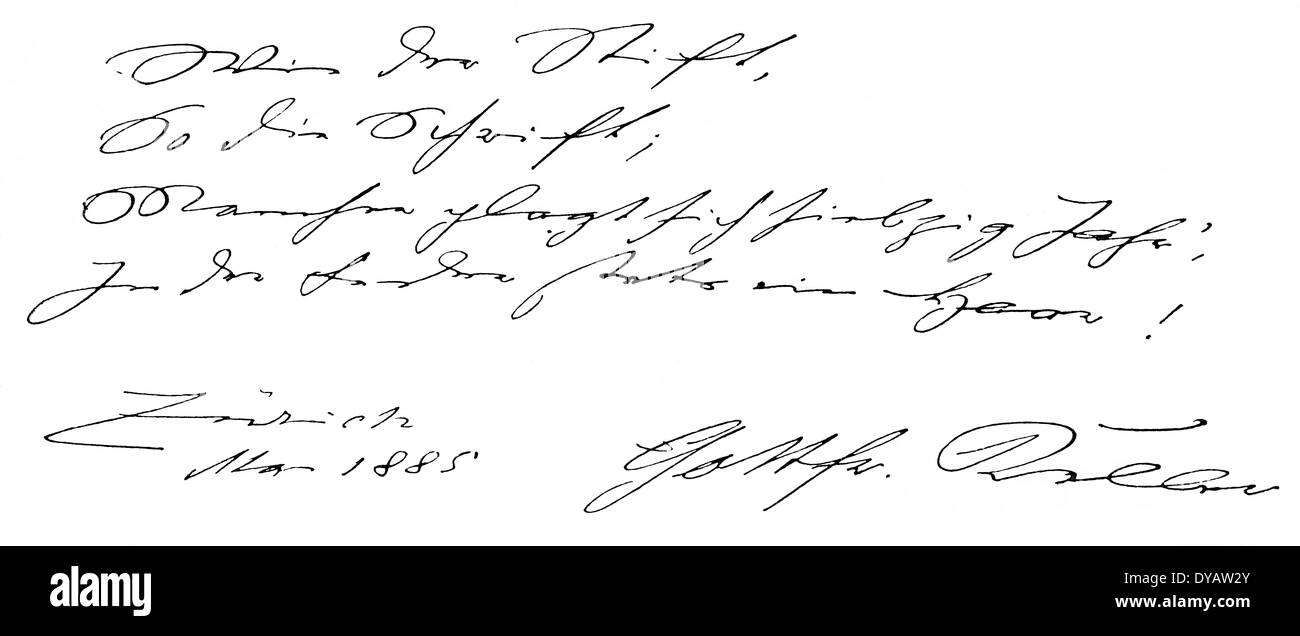 Wie der Stift,
So die Schrift;
Mancher plagt sich siebzig Jahr',
In der Feder stets ein Haar!
Zürich
Mai 1885
Gottfr. Keller
alamy
Image ID: DYAW2Y
www.alamy.com